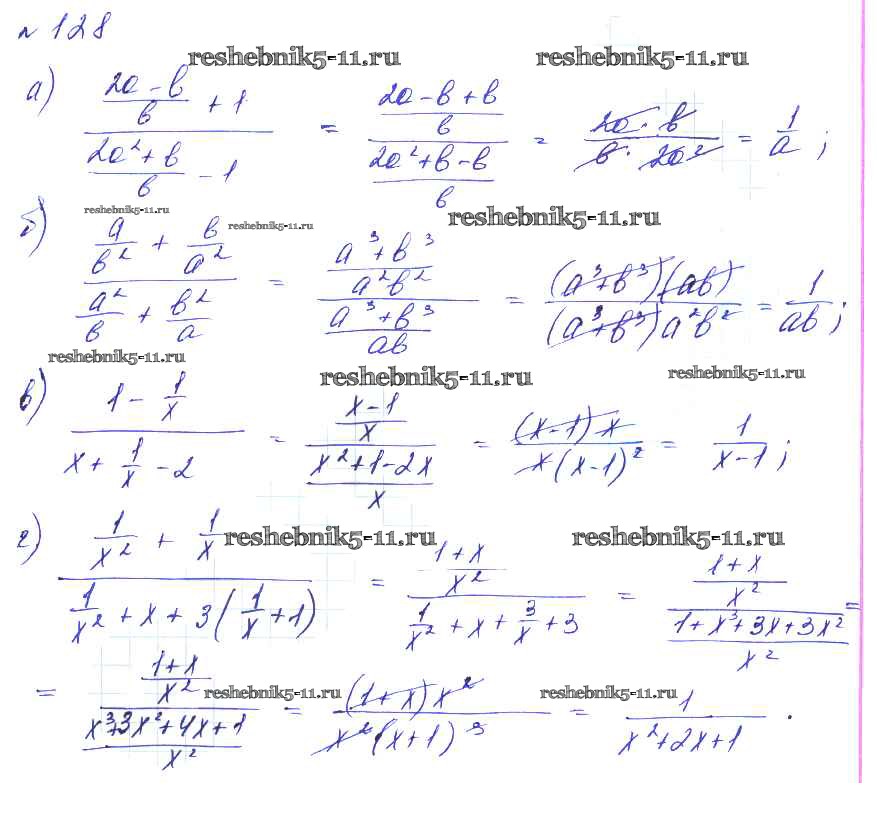 № 128
reshebnik5-11.ru reshebnik5-11.ru
а) ((2a-b)/b + 1)/((2a²+b)/b - 1) = ((2a-b+b)/b)/((2a²+b-b)/b) = (2a·b)/(b·2a²) = 1/a ;
reshebnik5-11.ru reshebnik5-11.ru reshebnik5-11.ru
б) (a/b² + b/a²)/(a²/b + b²/a) = ((a³+b³)/(a²b²))/((a³+b³)/(ab)) = ((a³+b³)(ab))/((a³+b³)a²b²) = 1/(ab) ;
reshebnik5-11.ru reshebnik5-11.ru reshebnik5-11.ru
в) (1 - 1/x)/(x + 1/x - 2) = ((x-1)/x)/((x²+1-2x)/x) = ((x-1)x)/(x(x-1)²) = 1/(x-1) ;
reshebnik5-11.ru reshebnik5-11.ru
г) (1/x² + 1/x)/(1/x² + x + 3(1/x+1)) = ((1+x)/x²)/(1/x² + x + 3/x + 3) = ((1+x)/x²)/((1+x³+3x+3x²)/x²) =
= ((1+x)/x²)/((x³+3x²+4x+1)/x²) = ((1+x)x²)/(x²(x+1)³) = 1/(x²+2x+1) .
reshebnik5-11.ru reshebnik5-11.ru